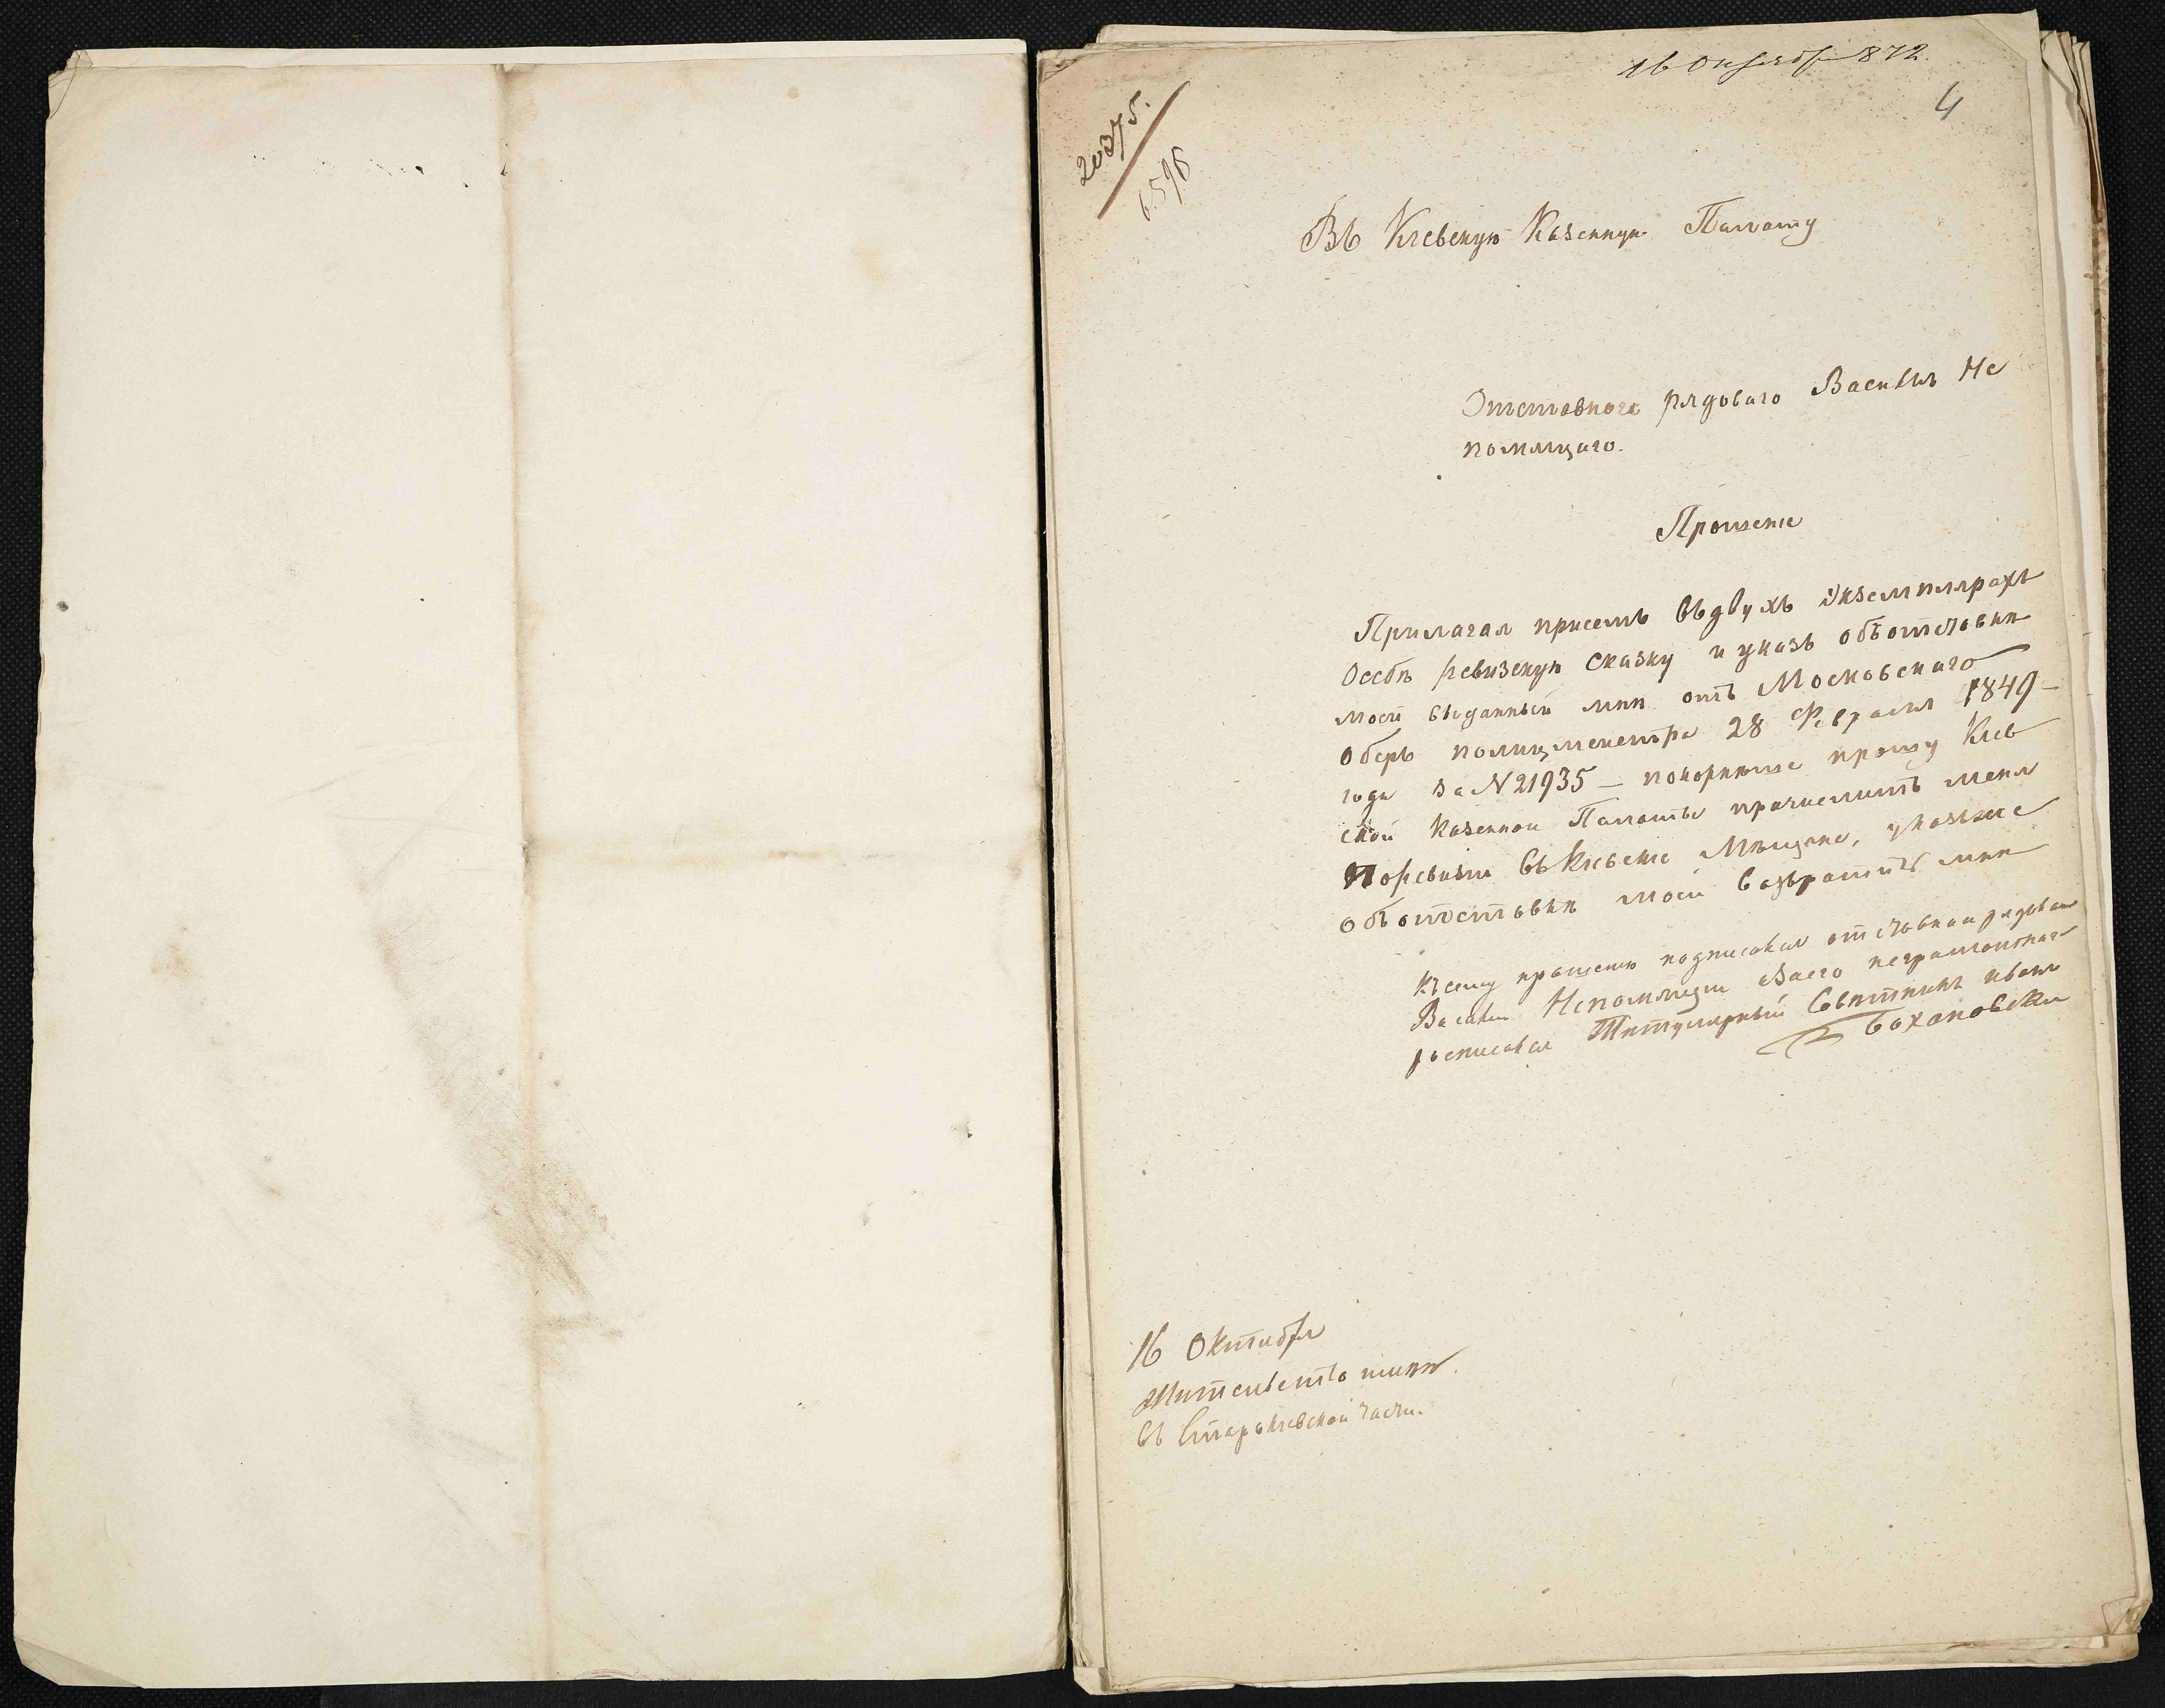 16 Октября 872
4
20375.
6598
Въ Кіевскую Казенную Палату
Отставнаго рядоваго Василія Не
помнящаго.
Прошеніе
Прилагая присемъ въдвухъ Экземплярахъ
Особѣ ревизскую сказку и указъ объотставки
моей выданный мнѣ отъ Московскаго
Оберъ полицмейстра 28 Февраля 1849
года за N 21935 — покорнѣше прошу Кіев
ской Казенной Палаты причислить меня
Поревизіи въ Кіевскіе Мѣщане, указже
объотставкѣ моей возвратить мнѣ
Ксему прошенію подписался отставной рядовой
Василій Непомнящій азаего неграмотнаго
росписался Титулярный Совѣтникъ иванъ
Бохановскій
16 Октября
Жительство имѣю
въ Старокіевской части.